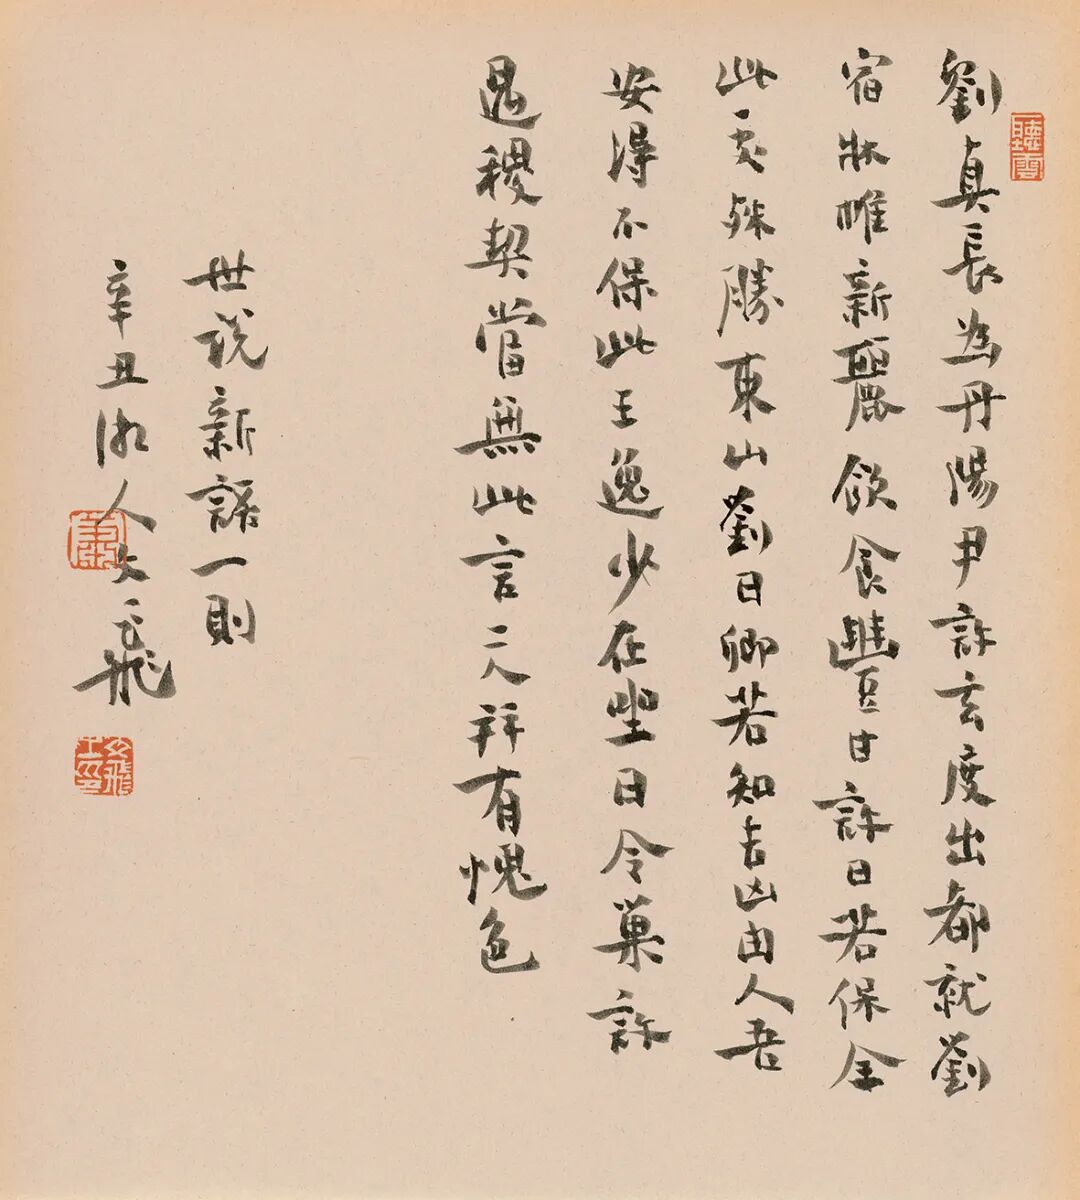 劉真長為丹陽尹許玄度出都就劉
宿牀帷新麗飲食豐甘許曰若保全
此處殊勝東山劉曰卿若知吉凶由人吾
安得不保此王逸少在坐曰令巢許
遇稷契當無此言二人并有愧色
世說新語一則
辛丑人飛